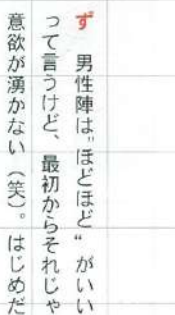 ず 男性陣は〝ほどほど〟がいい
って言うけど、最初からそれじゃ
意欲が湧かない(笑)。はじめだ